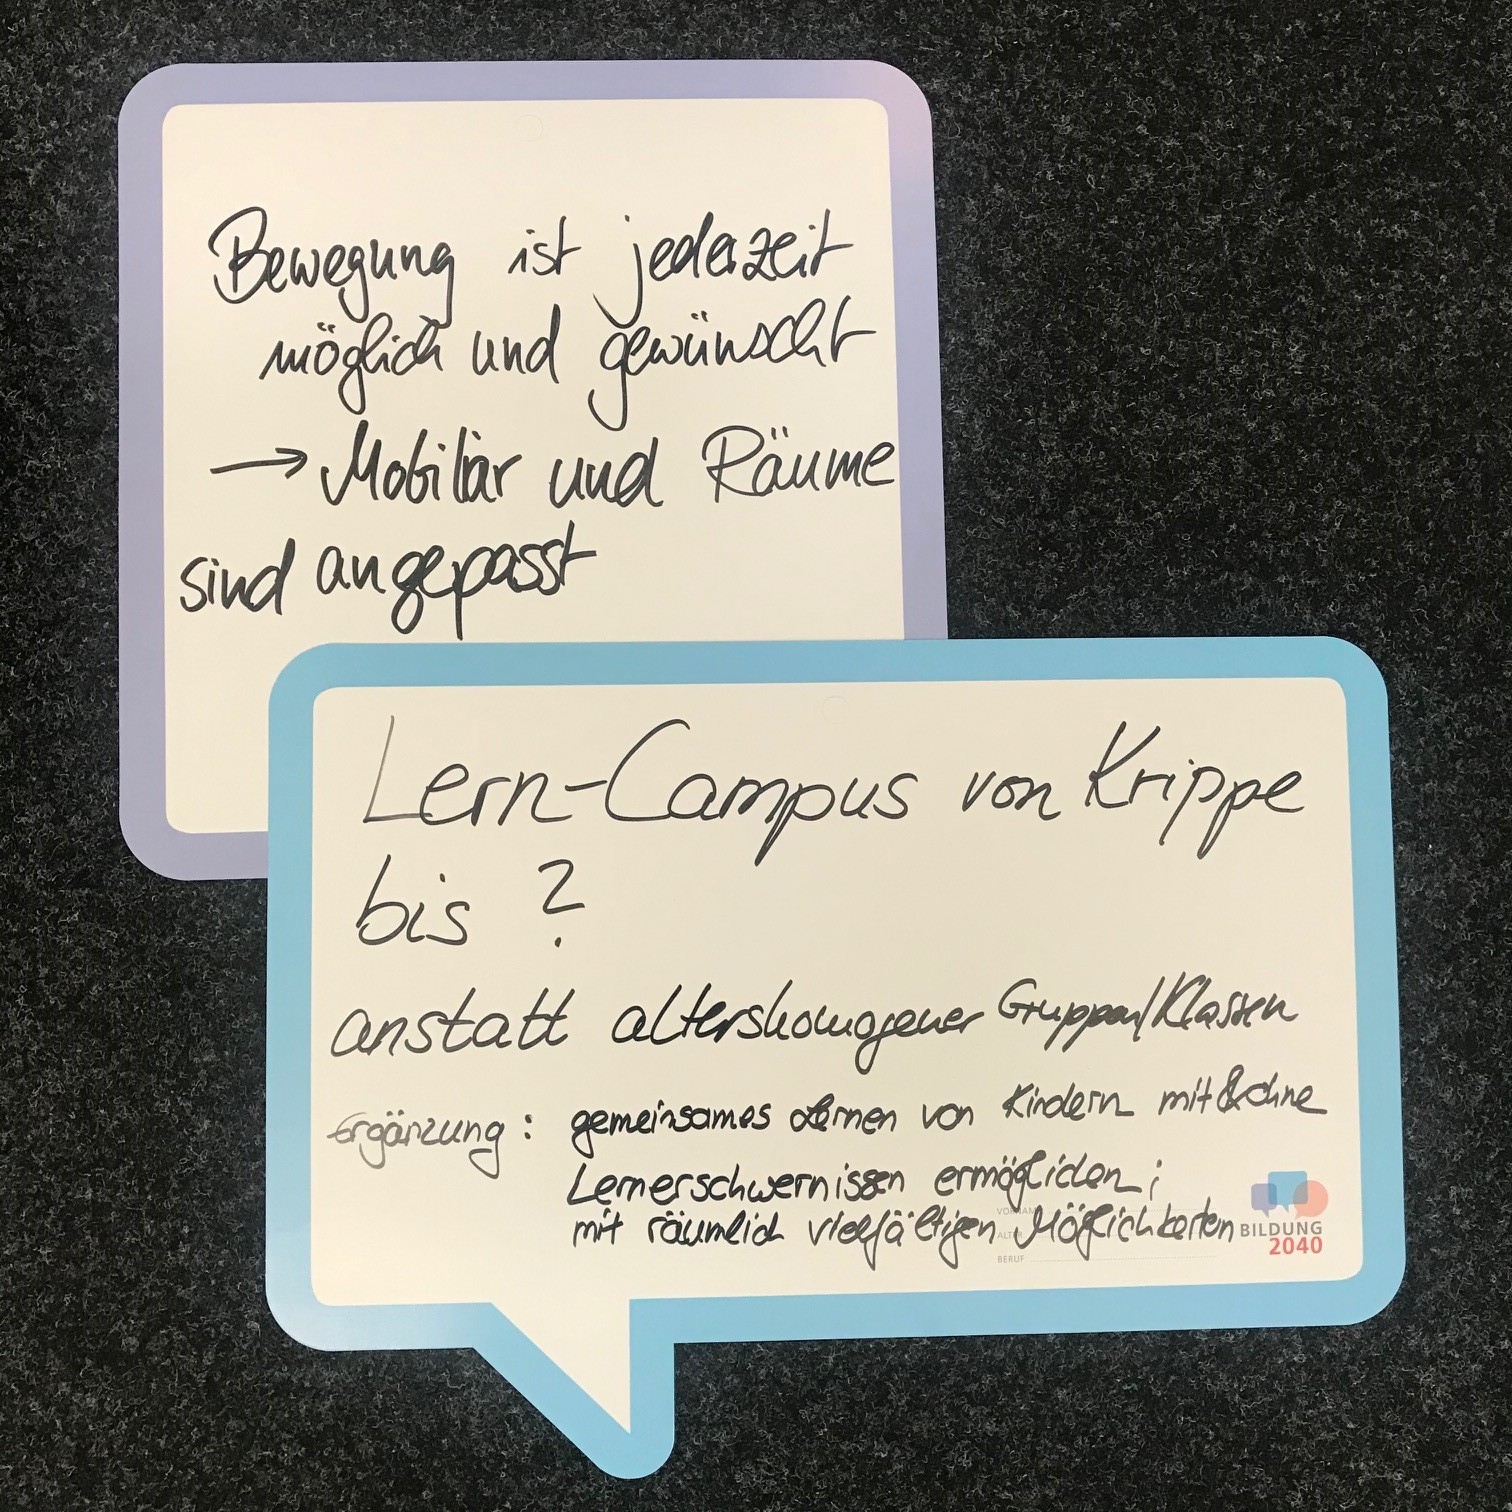 Bewegung ist jederzeit
möglich und gewünscht
→ Mobiliar und Räume
sind angepasst
Lern-Campus von Krippe
bis ?
anstatt altershomogener Gruppen/Klassen
Ergänzung: gemeinsames Lernen von Kindern mit & ohne
Lernerschwernissen ermöglichen;
mit räumlich vielfältigen Möglichkeiten
VORNAME
ALTER
BERUF
BILDUNG
2040